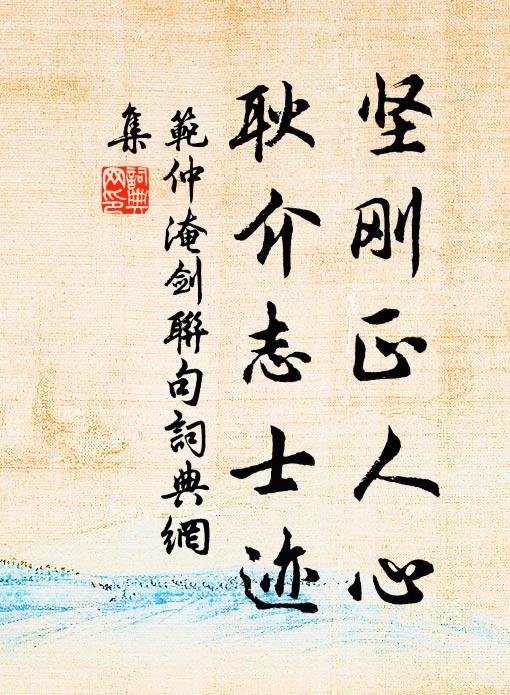 坚刚正人心
耿介志士迹
範仲淹剑聯句詞典網
集
詞典
网印